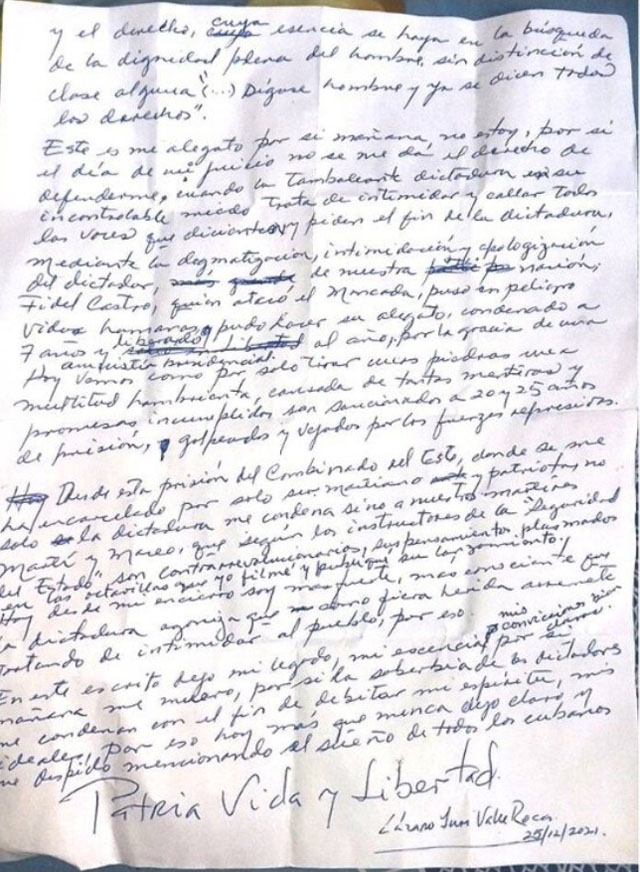 y el derecho, cuya esencia se haya en la búsqueda
de la dignidad plena del hombre, sin distinción de
clase alguna "(...) Dígase hombre y ya se dicen todos
los derechos".
Este es mi alegato por si mañana no estoy, por si
el día de mi juicio no se me dá el derecho de
defenderme, cuando la tambaleante dictadura en su
incontrolable miedo trata de intimidar y callar todas
las voces que y piden el fin de la dictadura,
mediante la dogmatización, intimidación y apologización
del dictador de nuestra nación;
Fidel Castro, quien atacó el Moncada, puso en peligro
vidas humanas, pudo hacer su alegato, condenado a
7 años y liberado al año, por la gracia de una
amnistía presidencial.
Hoy vemos como por solo tirar unas piedras una
multitud hambrienta, cansada de tantas mentiras y
promesas incumplidas son sancionados a 20 y 25 años
de prisión, golpeados y vejados por las fuerzas represivas.
Desde esta prisión del Combinado del Este, donde se me
ha encarcelado por solo ser martiano y patriota, no
solo la dictadura me condena sino a nuestros mártires
Martí y Maceo, que según los instructores de la "Seguridad
del Estado" son contrarrevolucionarios, sus pensamientos plasmados
en las octavillas que yo filmé y publiqué su lanzamiento;
Hoy desde mi encierro soy mas fuerte, mas consciente que
la dictadura agoniza que como fiera herida arremete
tratando de intimidar al pueblo, por eso.
En este escrito dejo mi legado, mi escencia, mis convicciones bien claras, por si
mañana me muero, por si la soberbia de los dictadores
me condenan con el fin de debilitar mi espíritu, mis
ideales. Por eso hoy mas que nunca dejo claro y
me despido mencionando el sueño de todos los cubanos
Patria Vida y Libertad.
Lázaro Yuri Valle Roca
25/12/2021.